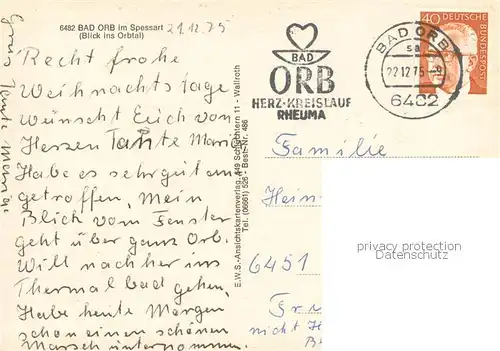 6482 BAD ORB im Spessart
(Blick ins Orbtal)
21.12.75
Recht frohe
Weihnachtstage
wünscht Euch von
Herzen Tante
Habe es sehr gut an
getroffen, Mein
Blick vom Fenster
geht über ganz Orb.
Will nachher ins
Thermal bad gehen,
Habe heute Morgen
schon einen schönen
Marsch unternommen.
Gruss Tante
E.W.S.-Ansichtskartenverlag, 649 Schlüchtern 11 - Wallroth
Tel. (06661) 526 - Bestr.-Nr. 486
BAD
ORB
HERZ·KREISLAUF
RHEUMA
BAD ORB
sa
22.12.75
6482
40 DEUTSCHE
BUNDESPOST
Familie
Hein
6451
nicht H
privacy protection
Datenschutz